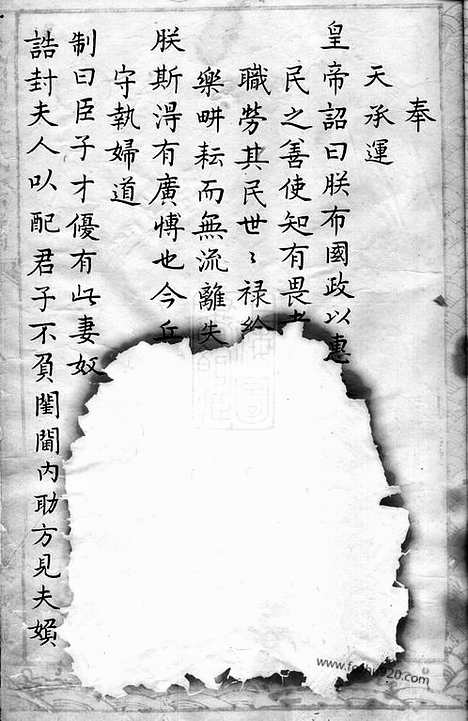 奉
天承運
皇帝詔曰朕布國政以惠
民之善使知有畏者
職勞其民世〻禄給
樂畊耘而無流離失
朕斯淂有廣愽也今丘
守執婦道
制曰臣子才優有此妻奴
誥封夫人以配君子不負閨閫内助方見夫
www.fo
920.com